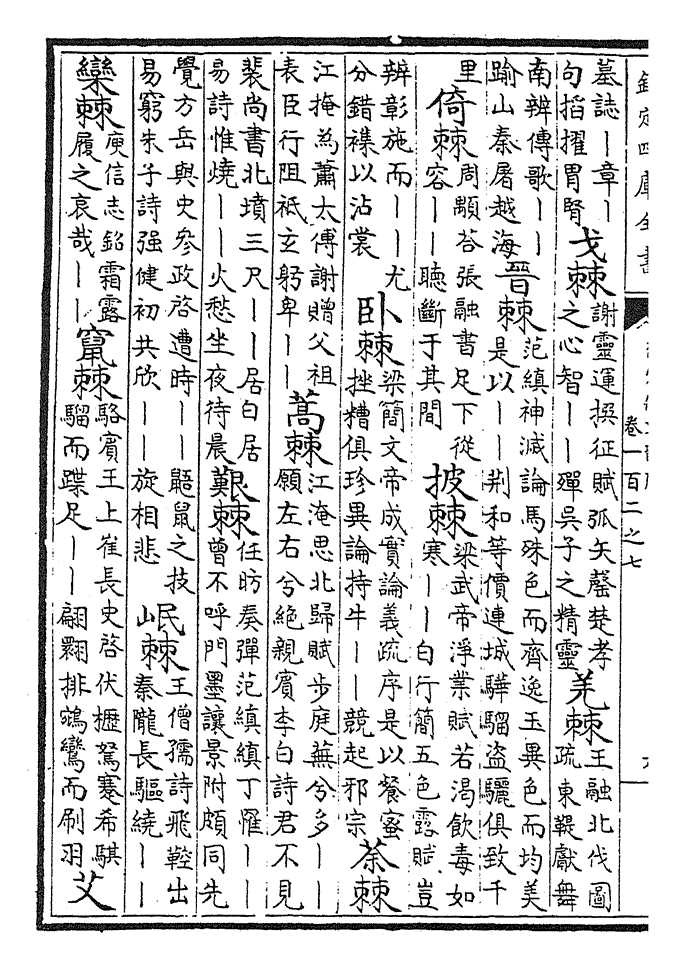 欽定四庫全書
卷一百二之七
墓誌丨章丨句搯擢胃腎 戈棘 謝靈運撰征賦弧矢罄楚孝之心智丨丨殫吳子之精靈 羌棘 王融北伐圖疏東鞮獻舞
南辨傳歌丨丨踰山秦屠越海 晉棘 范縝神滅論馬殊色而齊逸玉異色而均美是以丨丨荆和等價連城驊騮盗驪俱致千
里 倚棘 周顒荅張融書足下從容丨丨聽斷于其間 披棘 梁武帝淨業賦若渴飲毒如寒丨丨白行簡五色露賦豈
辨彰施而丨丨尤分錯襍以沾裳 卧棘 梁簡文帝成實論義疏序是以餐蜜挫糟俱珍異論持牛丨丨競起邪宗 荼棘
江掩為蕭太傅謝贈父祖表臣行阻祇玄躬卑丨丨 蒿棘 江淹思北歸賦步庭蕪兮多丨丨願左右兮絶親賓李白詩君不見
裴尚書北墳三尺丨丨居白居易詩惟燒丨丨火愁坐夜待晨 艱棘 任昉奏彈范縝縝丁罹丨丨曾不呼門墨讓景附頗同先
覺方岳與史叅政啓遭時丨丨鼯鼠之技易窮朱子詩强健初共欣丨丨旋相悲 岷棘 王僧孺詩飛鞚出秦隴長驅繞丨丨
欒棘 庾信志銘霜露履之哀哉丨丨 竄棘 駱賓王上崔長史啓伏櫪駑蹇希騏騮而蹀足丨丨翩翾排鵷鸞而刷羽 艾